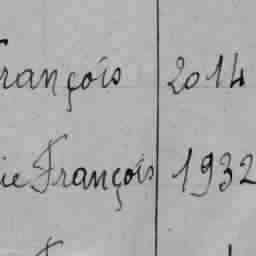 François 2014
ie François 1932